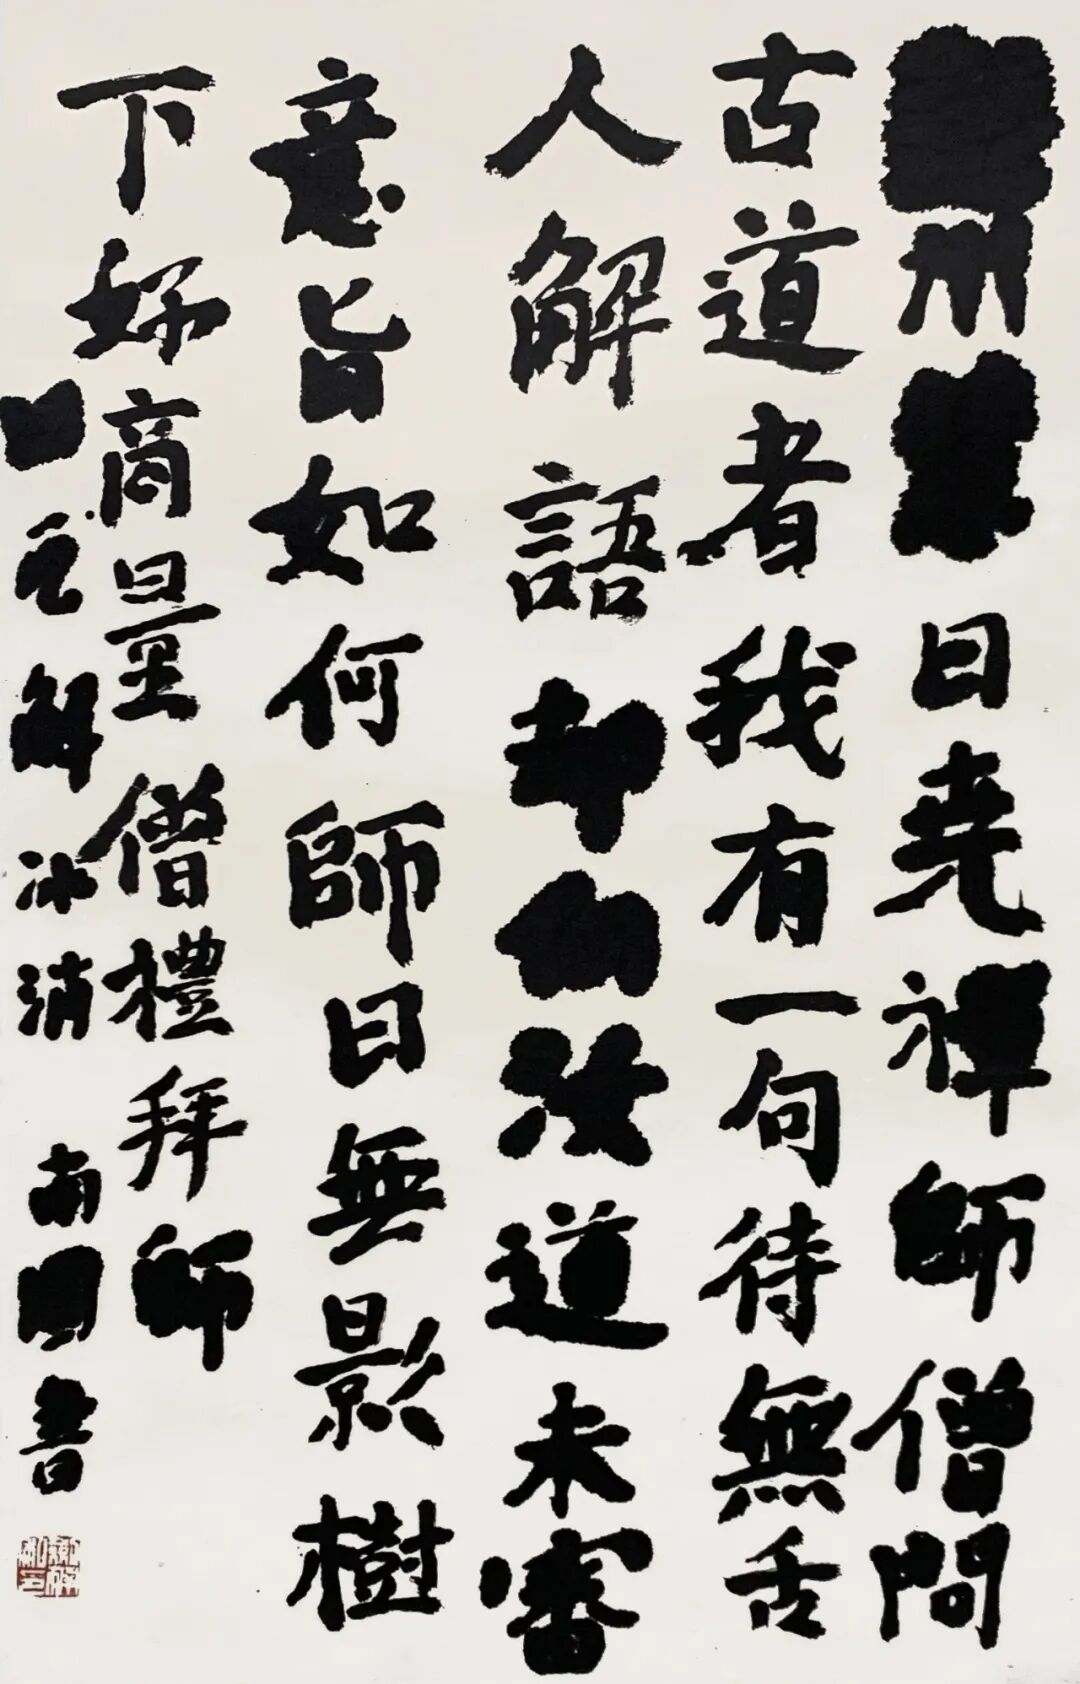 州 日堯禪師僧問
古道者我有一句待無舌
人解語却向汝道未審
意旨如何師曰無影樹
下好商量僧禮拜師
曰瓦解冰消 南 書